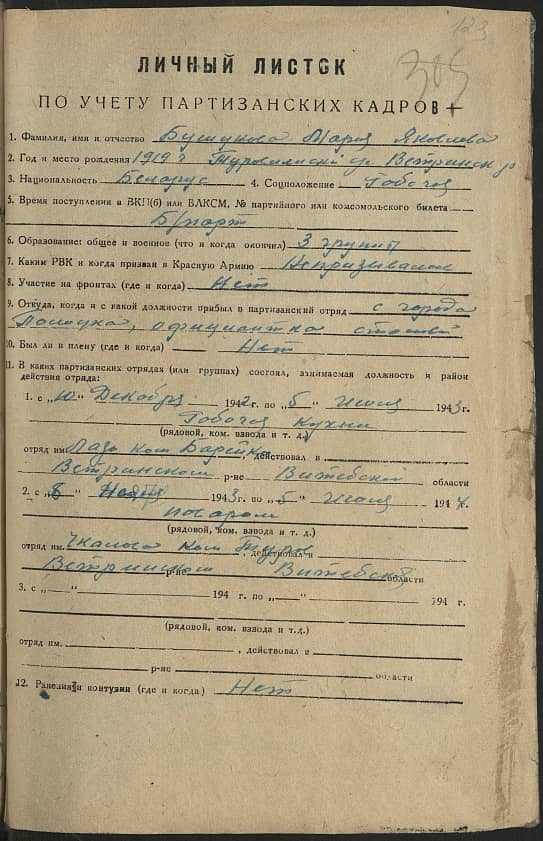 123
305
ЛИЧНЫЙ ЛИСТОК
ПО УЧЕТУ ПАРТИЗАНСКИХ КАДРОВ
1. Фамилия, имя и отчество Мария Яковлева
2. Год и место рождения 1919 г
3. Национальность Беларус 4. Соцположение Робочая
5. Время поступления в ВКП(б) или ВЛКСМ, № партийного или комсомольского билета
Б/парт
6. Образование: общее и военное (что и когда окончил) 3 групы
7. Каким РВК и когда призван в Красную Армию
8. Участие на фронтах (где и когда) Нет
9. Откуда, когда и с какой должности прибыл в партизанский отряд с города
Полоцка, официантка
10. Был ли в плену (где и когда) Нет
11. В каких партизанских отрядах (или группах) состоял, занимаемая должность и район
действия отряда:
1. с „10“ Декабря 1942 г. по „5“ Июля 1943 г.
Робочая Кухни
(рядовой, ком. взвода и т. д.)
отряд им. Лазо ком , действовал в
Ветринском р-не Витебской области
2. с „8“ 1943 г. по „5“ Июля 1944 г.
поваром
(рядовой, ком. взвода и т. д.)
отряд им. Чкалова ком , действовал в
Ветринском р-не Витебской области
3. с „ “ 194 г. по „ “ 194 г.
(рядовой, ком. взвода и т.д.)
отряд им. , действовал в
р-не области
12. Ранения и контузии (где и когда) Нет